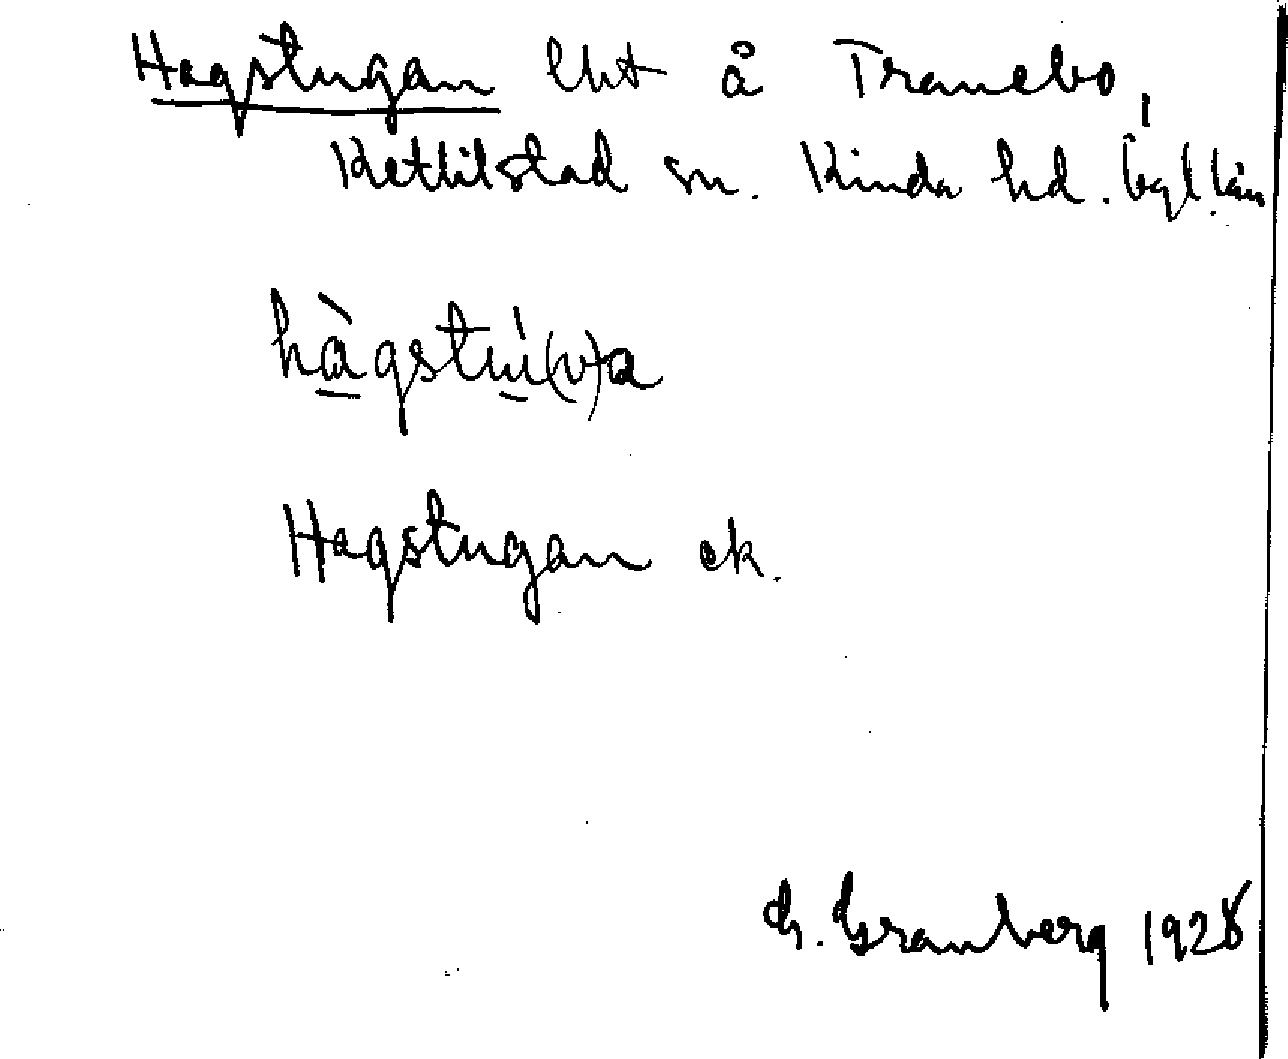 Hagstugan lht å Tranebo,
Kettilstad sn. Kinda hd. Ögl. län
hàgstú(v)a
Hagstugan ek.
G. Granberg 1928